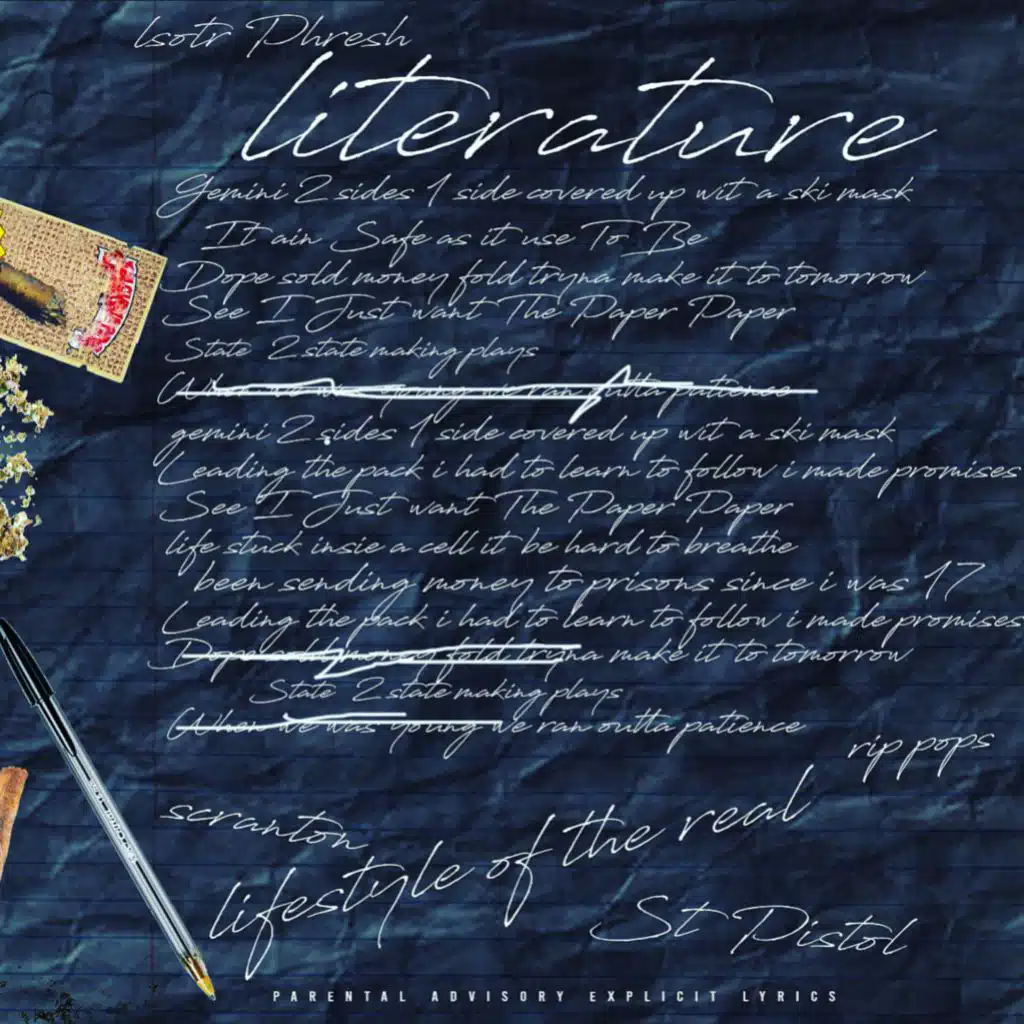 lsotr Phresh
literature
Gemini 2 sides 1 side covered up wit a ski mask
It ain Safe as it use To Be
Dope sold money fold tryna make it to tomorrow
See I Just want The Paper Paper
State 2 state making plays
When we was young we ran outta patience
gemini 2 sides 1 side covered up wit a ski mask
Leading the pack i had to learn to follow i made promises
See I Just want The Paper Paper
life stuck insie a cell it be hard to breathe
been sending money to prisons since i was 17
Leading the pack i had to learn to follow i made promises
Dope sold money fold tryna make it to tomorrow
State 2 state making plays
When we was young we ran outta patience
rip pops
scranton
lifestyle of the real
St Pistol
PARENTAL ADVISORY EXPLICIT LYRICS